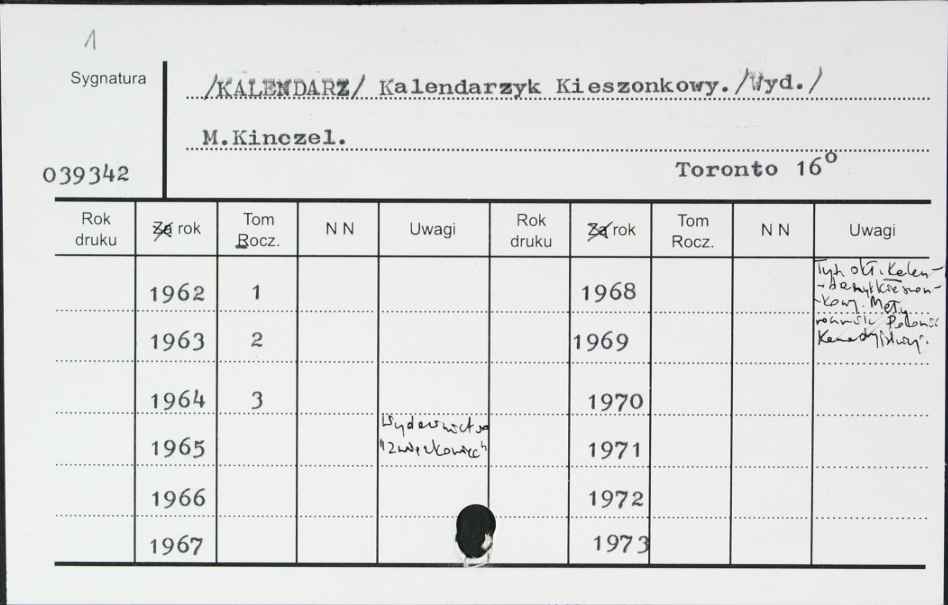 1
Sygnatura
/KALENDARZ/ Kalendarzyk Kieszonkowy./Wyd./
M.Kinczel.
039342
Toronto 16°
Rok druku Za rok Tom Rocz. N N Uwagi Rok druku Za rok Tom Rocz. N N Uwagi
1962 1 1968 Tyt. okł. Kalen-
-darzyk Kieszon-
-kowy. Mały
rocznik Polonii
Kanadyjskiej.
1963 2 1969
1964 3 1970
Wydawnictwo
"Związkowiec"
1965 1971
1966 1972
1967 1973